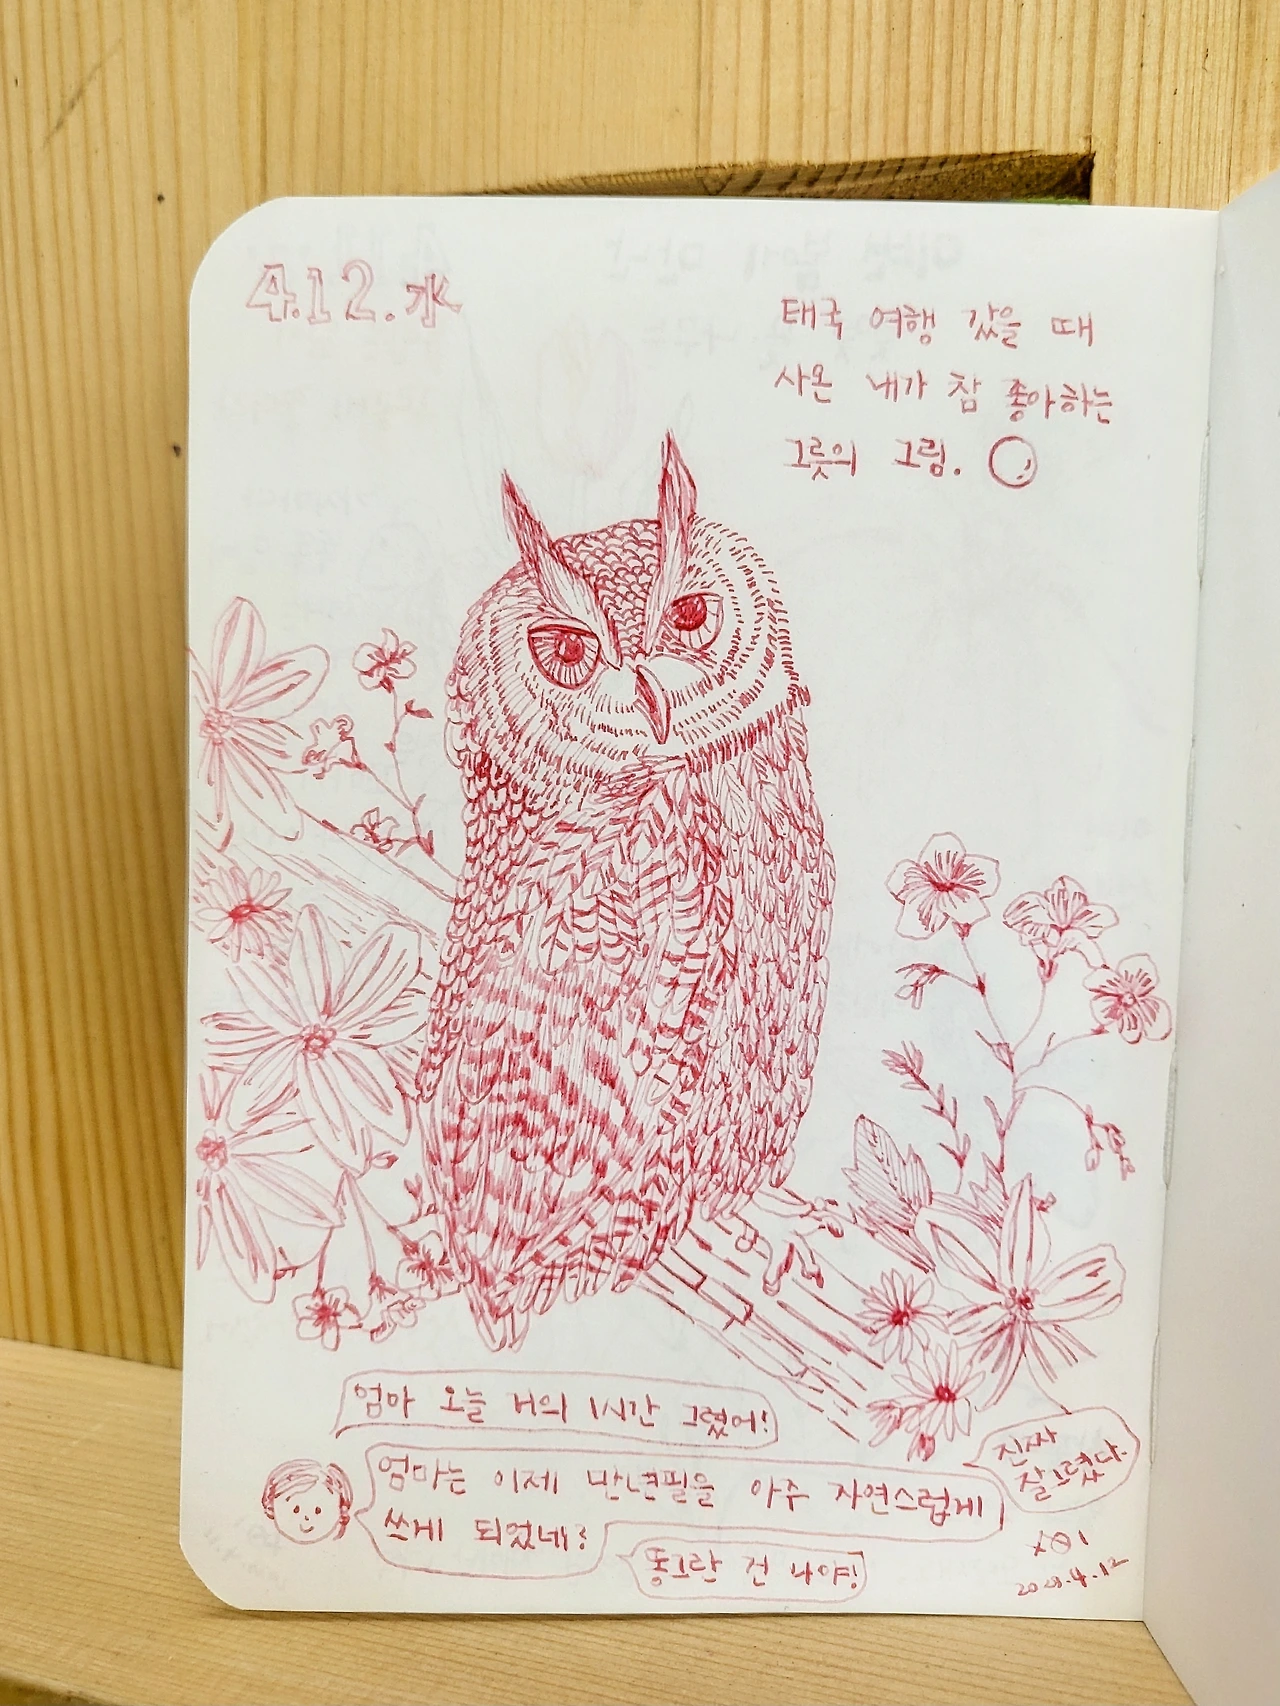 4.12.水
태국 여행 갔을 때
사온 내가 참 좋아하는
그릇의 그림.
엄마 오늘 거의 1시간 그렸어!
엄마는 이제 만년필을 아주 자연스럽게
쓰게 되었네?
진짜
잘 그렸다.
동그란 건 나야!
2023.4.12